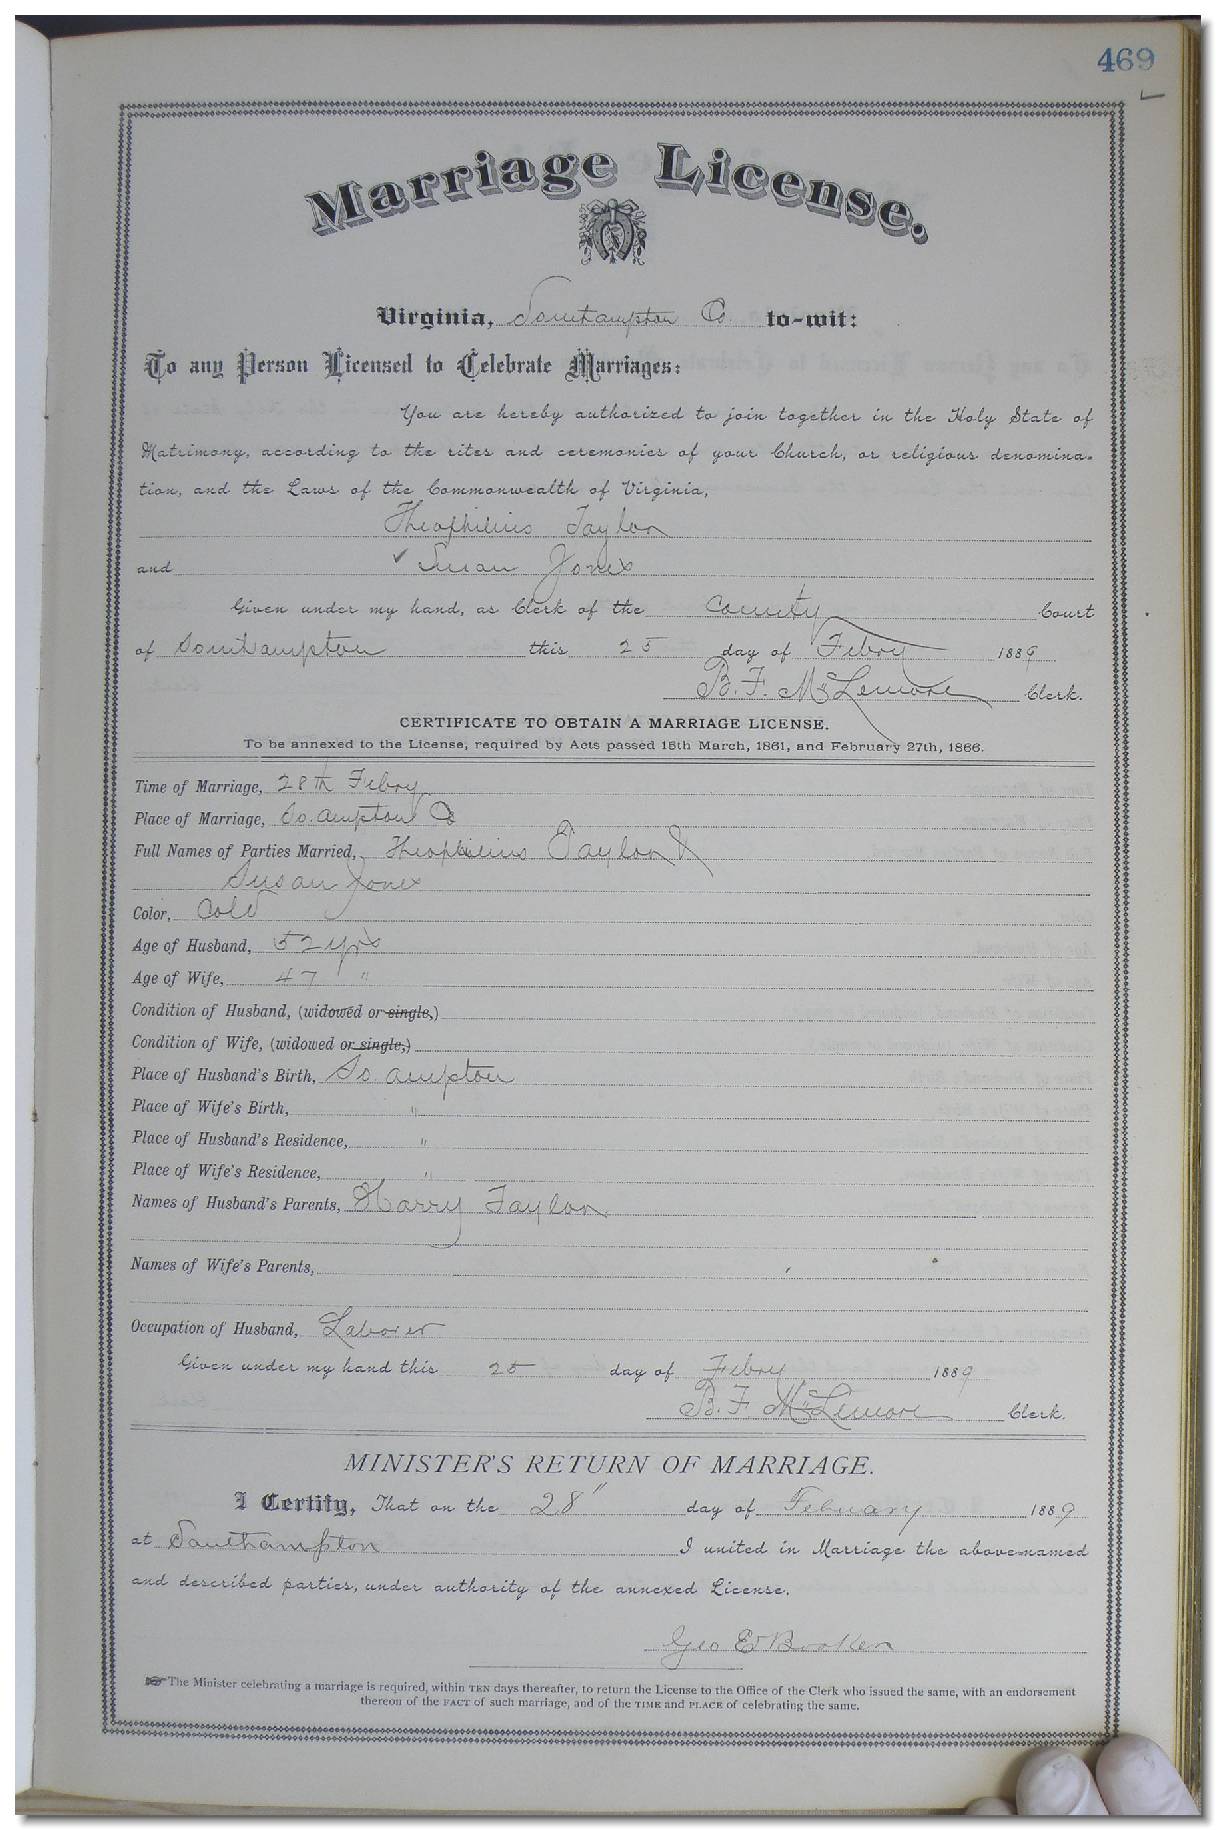 469
Marriage License.
Virginia, Southampton Co. to-wit:
To any Person Licensed to Celebrate Marriages:
You are hereby authorized to join together in the Holy State of
Matrimony, according to the rites and ceremonies of your Church, or religious denomina-
tion, and the Laws of the Commonwealth of Virginia,
Theophilius Taylor
and Susan Jones
Given under my hand, as Clerk of the County Court
of Southampton this 25 day of Febry 1889
B. F. McLemore Clerk.
CERTIFICATE TO OBTAIN A MARRIAGE LICENSE.
To be annexed to the License, required by Acts passed 15th March, 1861, and February 27th, 1866.
Time of Marriage, 28th Febry
Place of Marriage, So.ampton Co
Full Names of Parties Married, Theophilius Taylor &
Susan Jones
Color, Cold
Age of Husband, 52 yrs
Age of Wife, 47 "
Condition of Husband, (widowed or single,)
Condition of Wife, (widowed or single,)
Place of Husband's Birth, So. ampton
Place of Wife's Birth, "
Place of Husband's Residence, "
Place of Wife's Residence, "
Names of Husband's Parents, Harry Taylor
Names of Wife's Parents,
Occupation of Husband, Laborer
Given under my hand this 25 day of Febry 1889
B. F. McLemore Clerk.
MINISTER'S RETURN OF MARRIAGE.
I Certify, That on the 28" day of Febuary 1889
at Southampton I united in Marriage the above-named
and described parties, under authority of the annexed License.
Geo E Booker
The Minister celebrating a marriage is required, within TEN days thereafter, to return the License to the Office of the Clerk who issued the same, with an endorsement
thereon of the FACT of such marriage, and of the TIME and PLACE of celebrating the same.